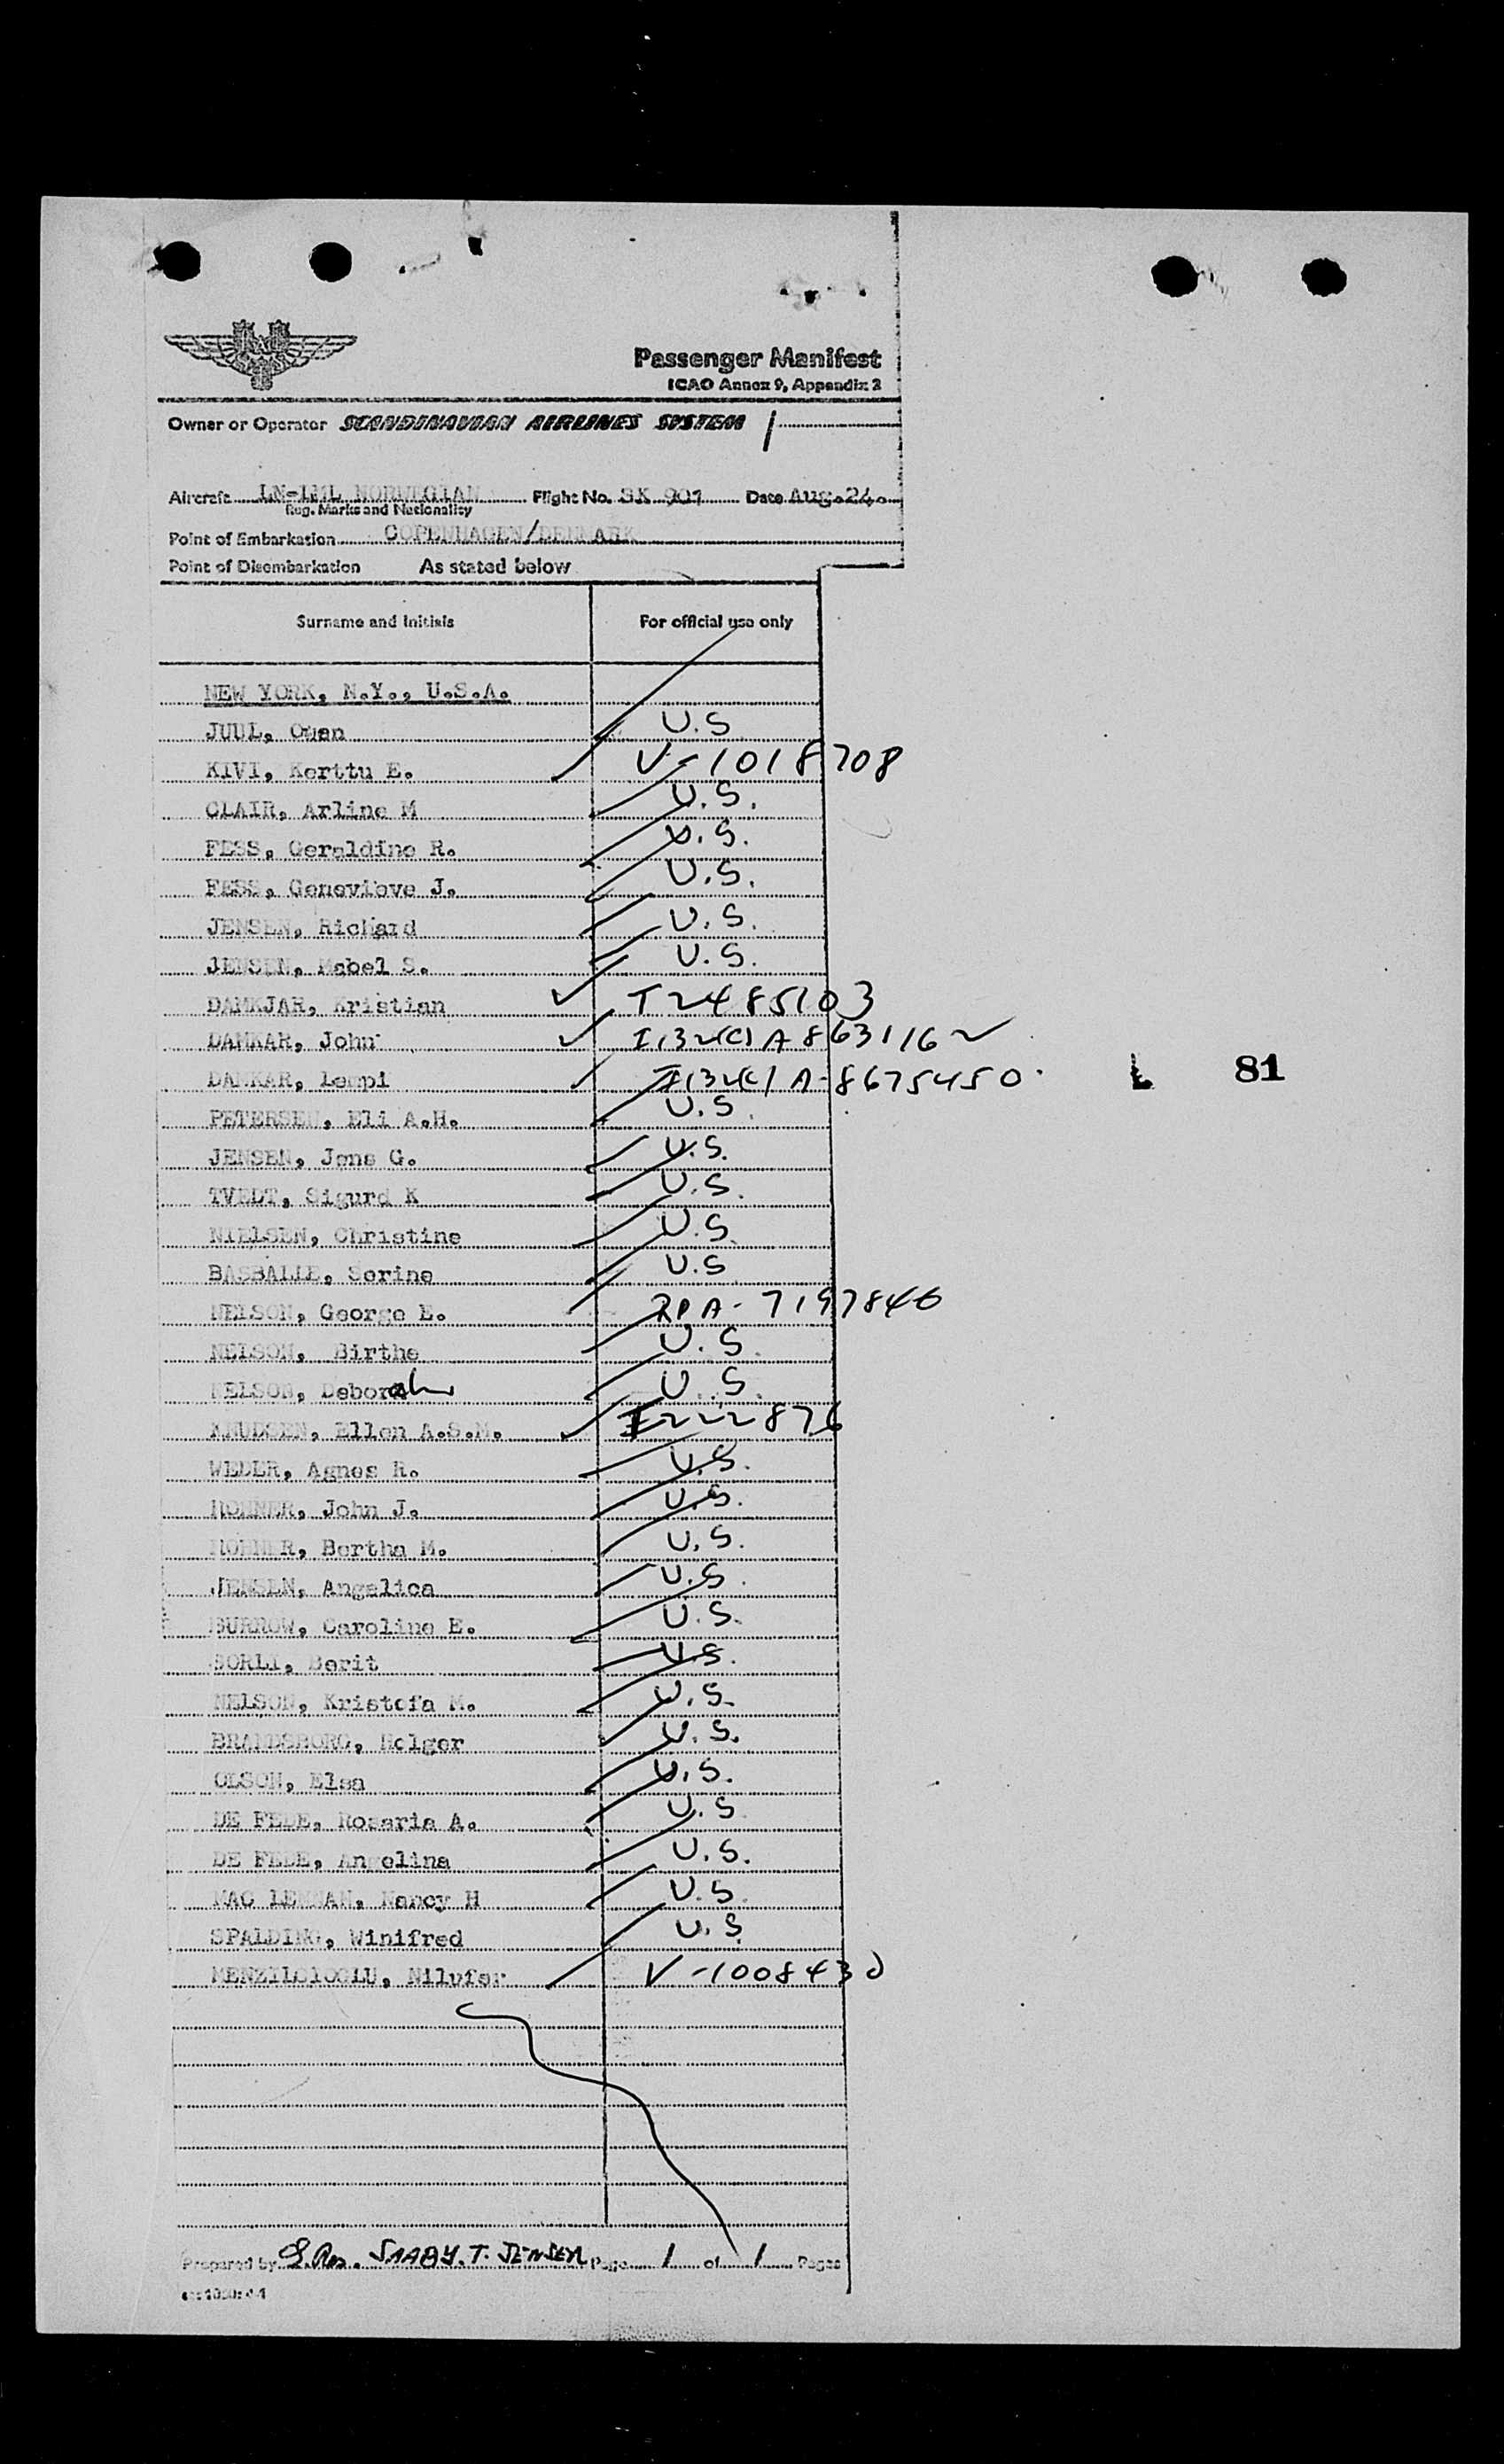 Passenger Manifest
ICAO Annex 9, Appendix 2
Owner or Operator SCANDINAVIAN AIRLINES SYSTEM
Aircraft LN-LML NORWEGIAN Flight No. SK 901 Date Aug. 24.
Reg. Marks and Nationality
Point of Embarkation COPENHAGEN/DENMARK
Point of Disembarkation As stated below
Surname and Initials For official use only
NEW YORK, N.Y., U.S.A.
JUUL, U.S
KIVI, Kerttu E. V-1018708
CLAIR, Arline M U.S.
FESS, Geraldine R. U.S.
FESS, Genevieve J. U.S.
JENSEN, Richard U.S.
JENSEN, Mabel S. U.S.
DAMKJAR, Kristian T2485103
DAMKAR, John I132(c) A8631162
DAMKAR, Lempi I132(c) A-8675450
L 81
PETERSEN, Eli A.H. U.S.
JENSEN, Jens G. U.S.
TVEDT, Sigurd K U.S.
NIELSEN, Christine U.S.
BASBALLE, Serine U.S
NELSON, George E. RPA-7197846
NELSON, Birthe U.S.
NELSON, Deborah U.S.
KNUDSEN, Ellen A.S.M. I222876
WEDER, Agnes R. U.S.
ROHNER, John J. U.S.
ROHNER, Bertha M. U.S.
JENSEN, Angelica U.S.
BURROW, Caroline E. U.S.
SORLI, Berit U.S.
NELSON, Kristofa M. U.S.
BRANDSBORG, Holger U.S.
OLSON, Elsa U.S.
DE FEDE, Rosaria A. U.S
DE FEDE, Angelina U.S.
MAC LENNAN, Nancy H U.S.
SPALDING, Winifred U.S.
MENZILCIOGLU, Nilufer V-1008430
Prepared by SAABY.T. JENSEN Page 1 of 1 Pages